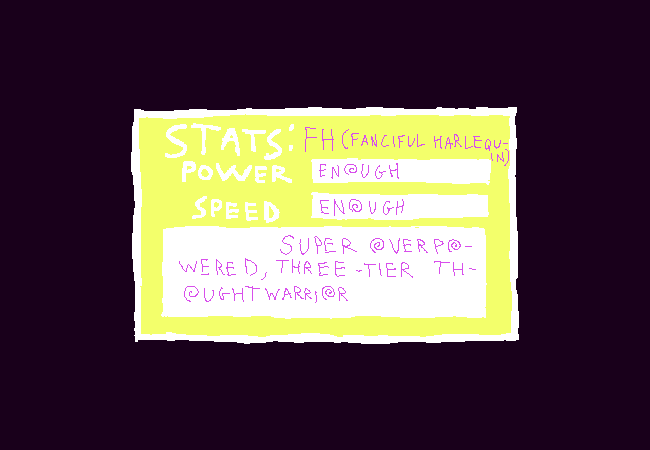 STATS: FH (FANCIFUL HARLEQU-
IN)
POWER EN@UGH
SPEED EN@UGH
SUPER @VERP@-
WERED, THREE-TIER TH-
@UGHTWARRI@R